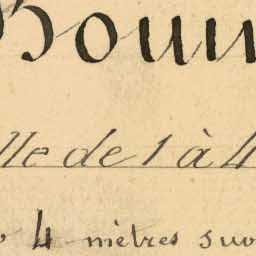 Bour
lle de 1 à 4
4 mètres suv